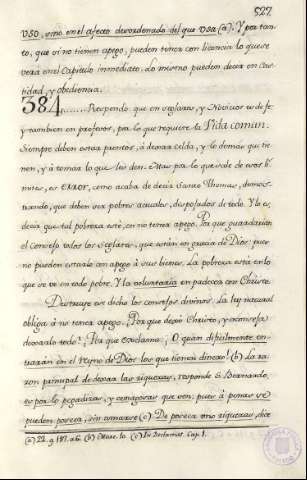 527
uso, sino en el afecto desordenado del que usa (a). Y por tan-
to, que si no tienen apego, pueden tener con licencia lo que se
verá en el Capitulo immediato. Lo mismo pueden decir en Cas-
tidad, y obediencia.
384........Respondo que en seglares, y Novicios es de fe
y tambien en profesos, por lo que requiere la Vida comun.
Siempre deben estar prontos, à dexar celda, y lo demas que tie-
nen, y à tomar lo que les den. Mas por lo que vale de esos li-
mites, es ERROR, como acaba de decir Santo Thomas, demos-
trando, que deben ser pobres actuales, despojados de todo. Y los
decia que tal pobreza està en no tener apego. Por que guardarian
el Consejo todos los Seglares, que están en gracia de Dios: pues
no pueden estarlo con apego à sus bienes. La pobreza está en lo
que se ve en todo pobre. Y la voluntaria en padecer con Christo.
Destruye ese dicho los consejos divinos. La ley natural
obliga à no tener apego. ¿Por que dexó Christo, y aconseja
dexarlo todo? ¿Por que exclama: O quan dificilmente en-
traràn en el Reyno de Dios los que tienen dinero! (b) La ra-
zon principal de dexar las riquezas, responde S. Bernardo,
es por lo pegadizas, y contagiosas que son: pues à penas se
pueden poseer, sin amarse (c) De poseer unas riquezas, dice
(a) 22. q. 187. a 6. (b) Marc. 10. (c) In Declamat. Cap. 1.